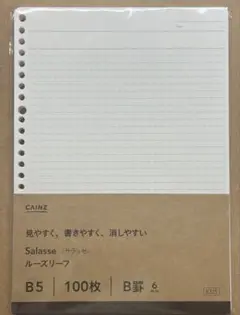 CAINZ
見やすく、書きやすく、消しやすい
Salasse (サラッセ)
ルーズリーフ
B5 100枚 B罫 6